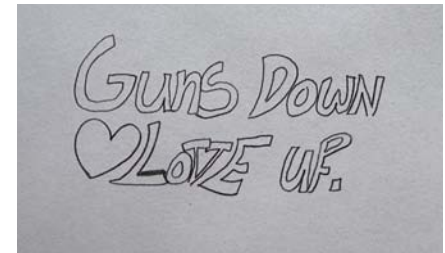 Guns Down
LOVE UP.